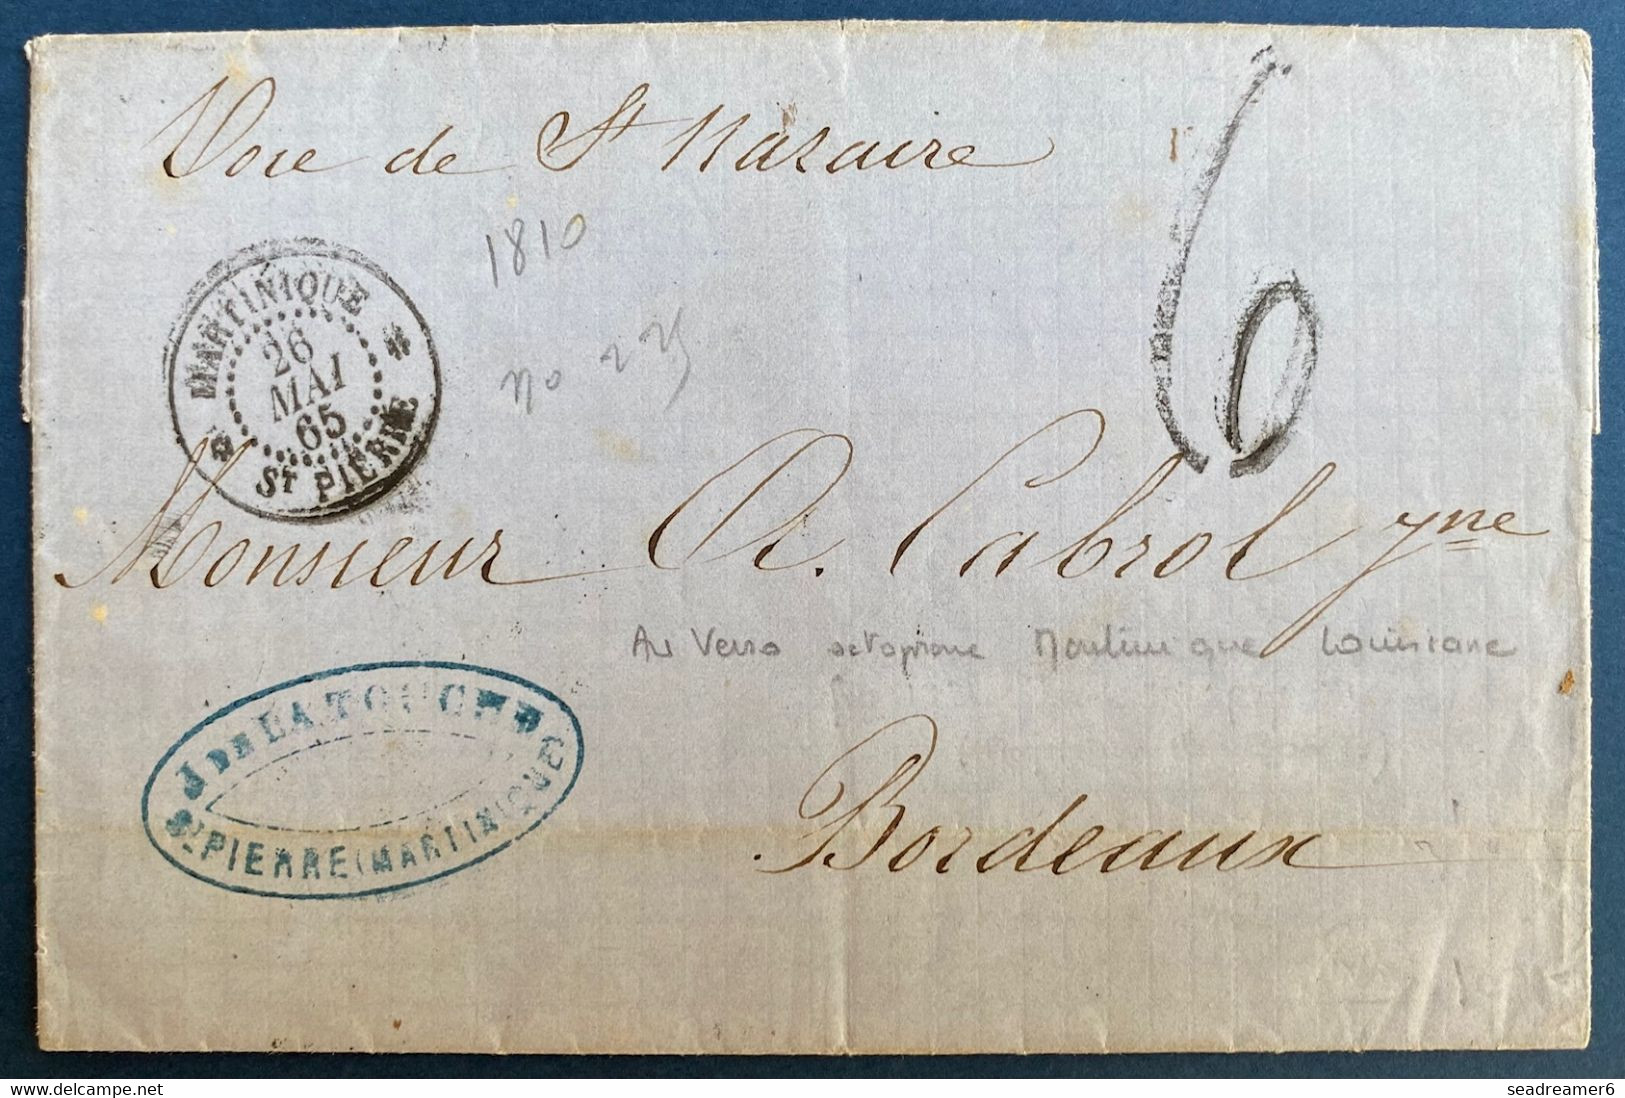 Voie de St Nazaire
6
1810
no 225
MARTINIQUE
26
MAI
65
St PIERRE
Monsieur A. Cabrol jne
Au Verso octogone Martinique Louisiane
J DE LATOUCHE
St PIERRE (MARTINIQUE
Bordeaux
delcampe.net
seadreamer6